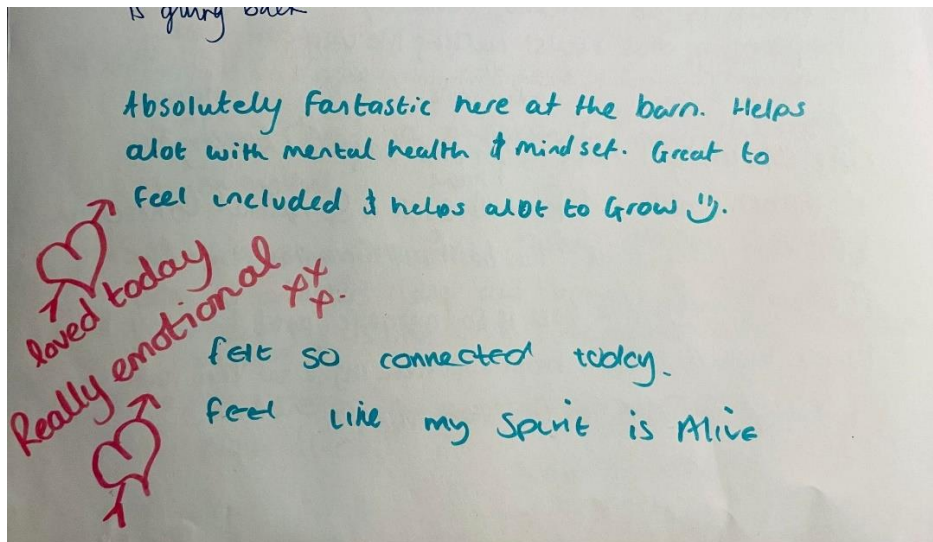 is giving back
Absolutely Fantastic here at the barn. Helps
alot with mental health & mindset. Great to
Feel included & helps alot to Grow :).
loved today
Really emotional xxx.
felt so connected today.
feel like my Spirit is Alive